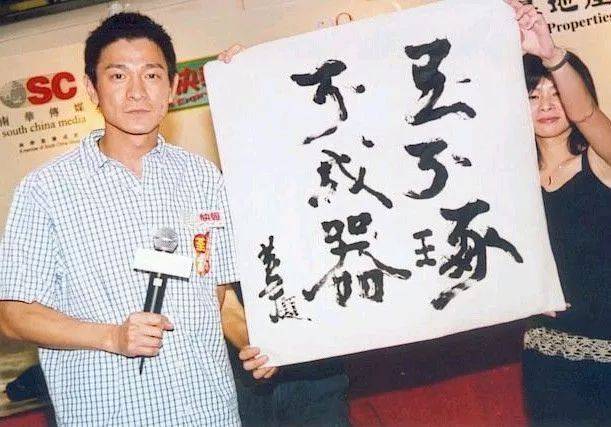 SC
南華傳媒
south china media
快報
地產
Properties
玉不琢
不成器
快報